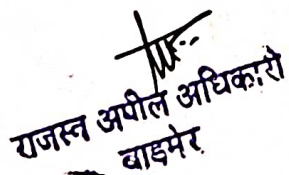 राजस्त अपील अधिकारी
बाड़मेर